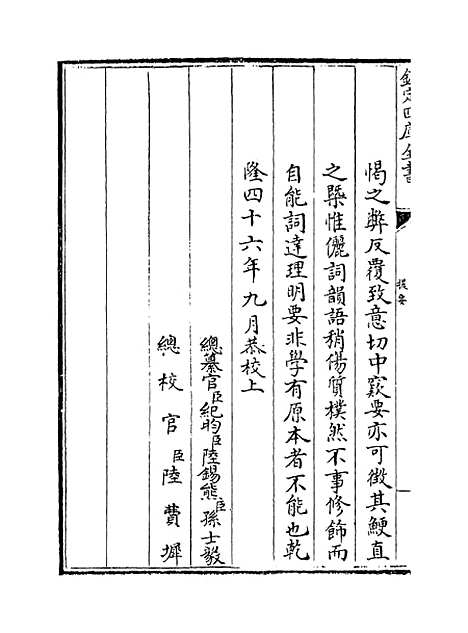 欽定四庫全書
提要
愒之弊反覆致意切中窾要亦可徵其鯁直
之槩惟儷詞韻語稍傷質樸然不事修飾而
自能詞達理明要非學有原本者不能也乾
隆四十六年九月恭校上
總纂官臣紀昀臣陸錫熊臣孫士毅
總校官臣陸費墀